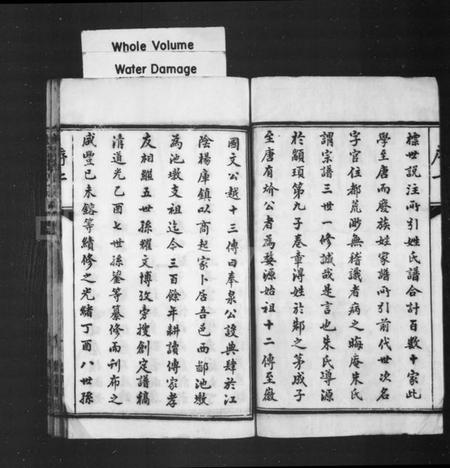 Whole Volume
Water Damage
標世說注所引姓氏譜合計百數十家此
學至唐而廢族姓家譜所引前代世次名
字官位都荒渺無稽識者病之晦庵朱氏
謂宗譜三世一修誠哉是言也朱氏導源
於顓頊第九子卷章得姓於邾之茅成子
至唐有瓌公者為婺源始祖十二傳至徽
國文公越十三傳曰奉泉公設典肆於江
陰楊庫鎮以商起家卜居吾邑西鄙池墩
為池墩支祖迄今三百餘年耕讀傳家孝
友相繼五世孫耀文博攷旁搜創定譜稿
清道光乙酉七世孫鋆等纂修而刊布之
咸豐己未鎔等續修之光緒丁酉八世孫